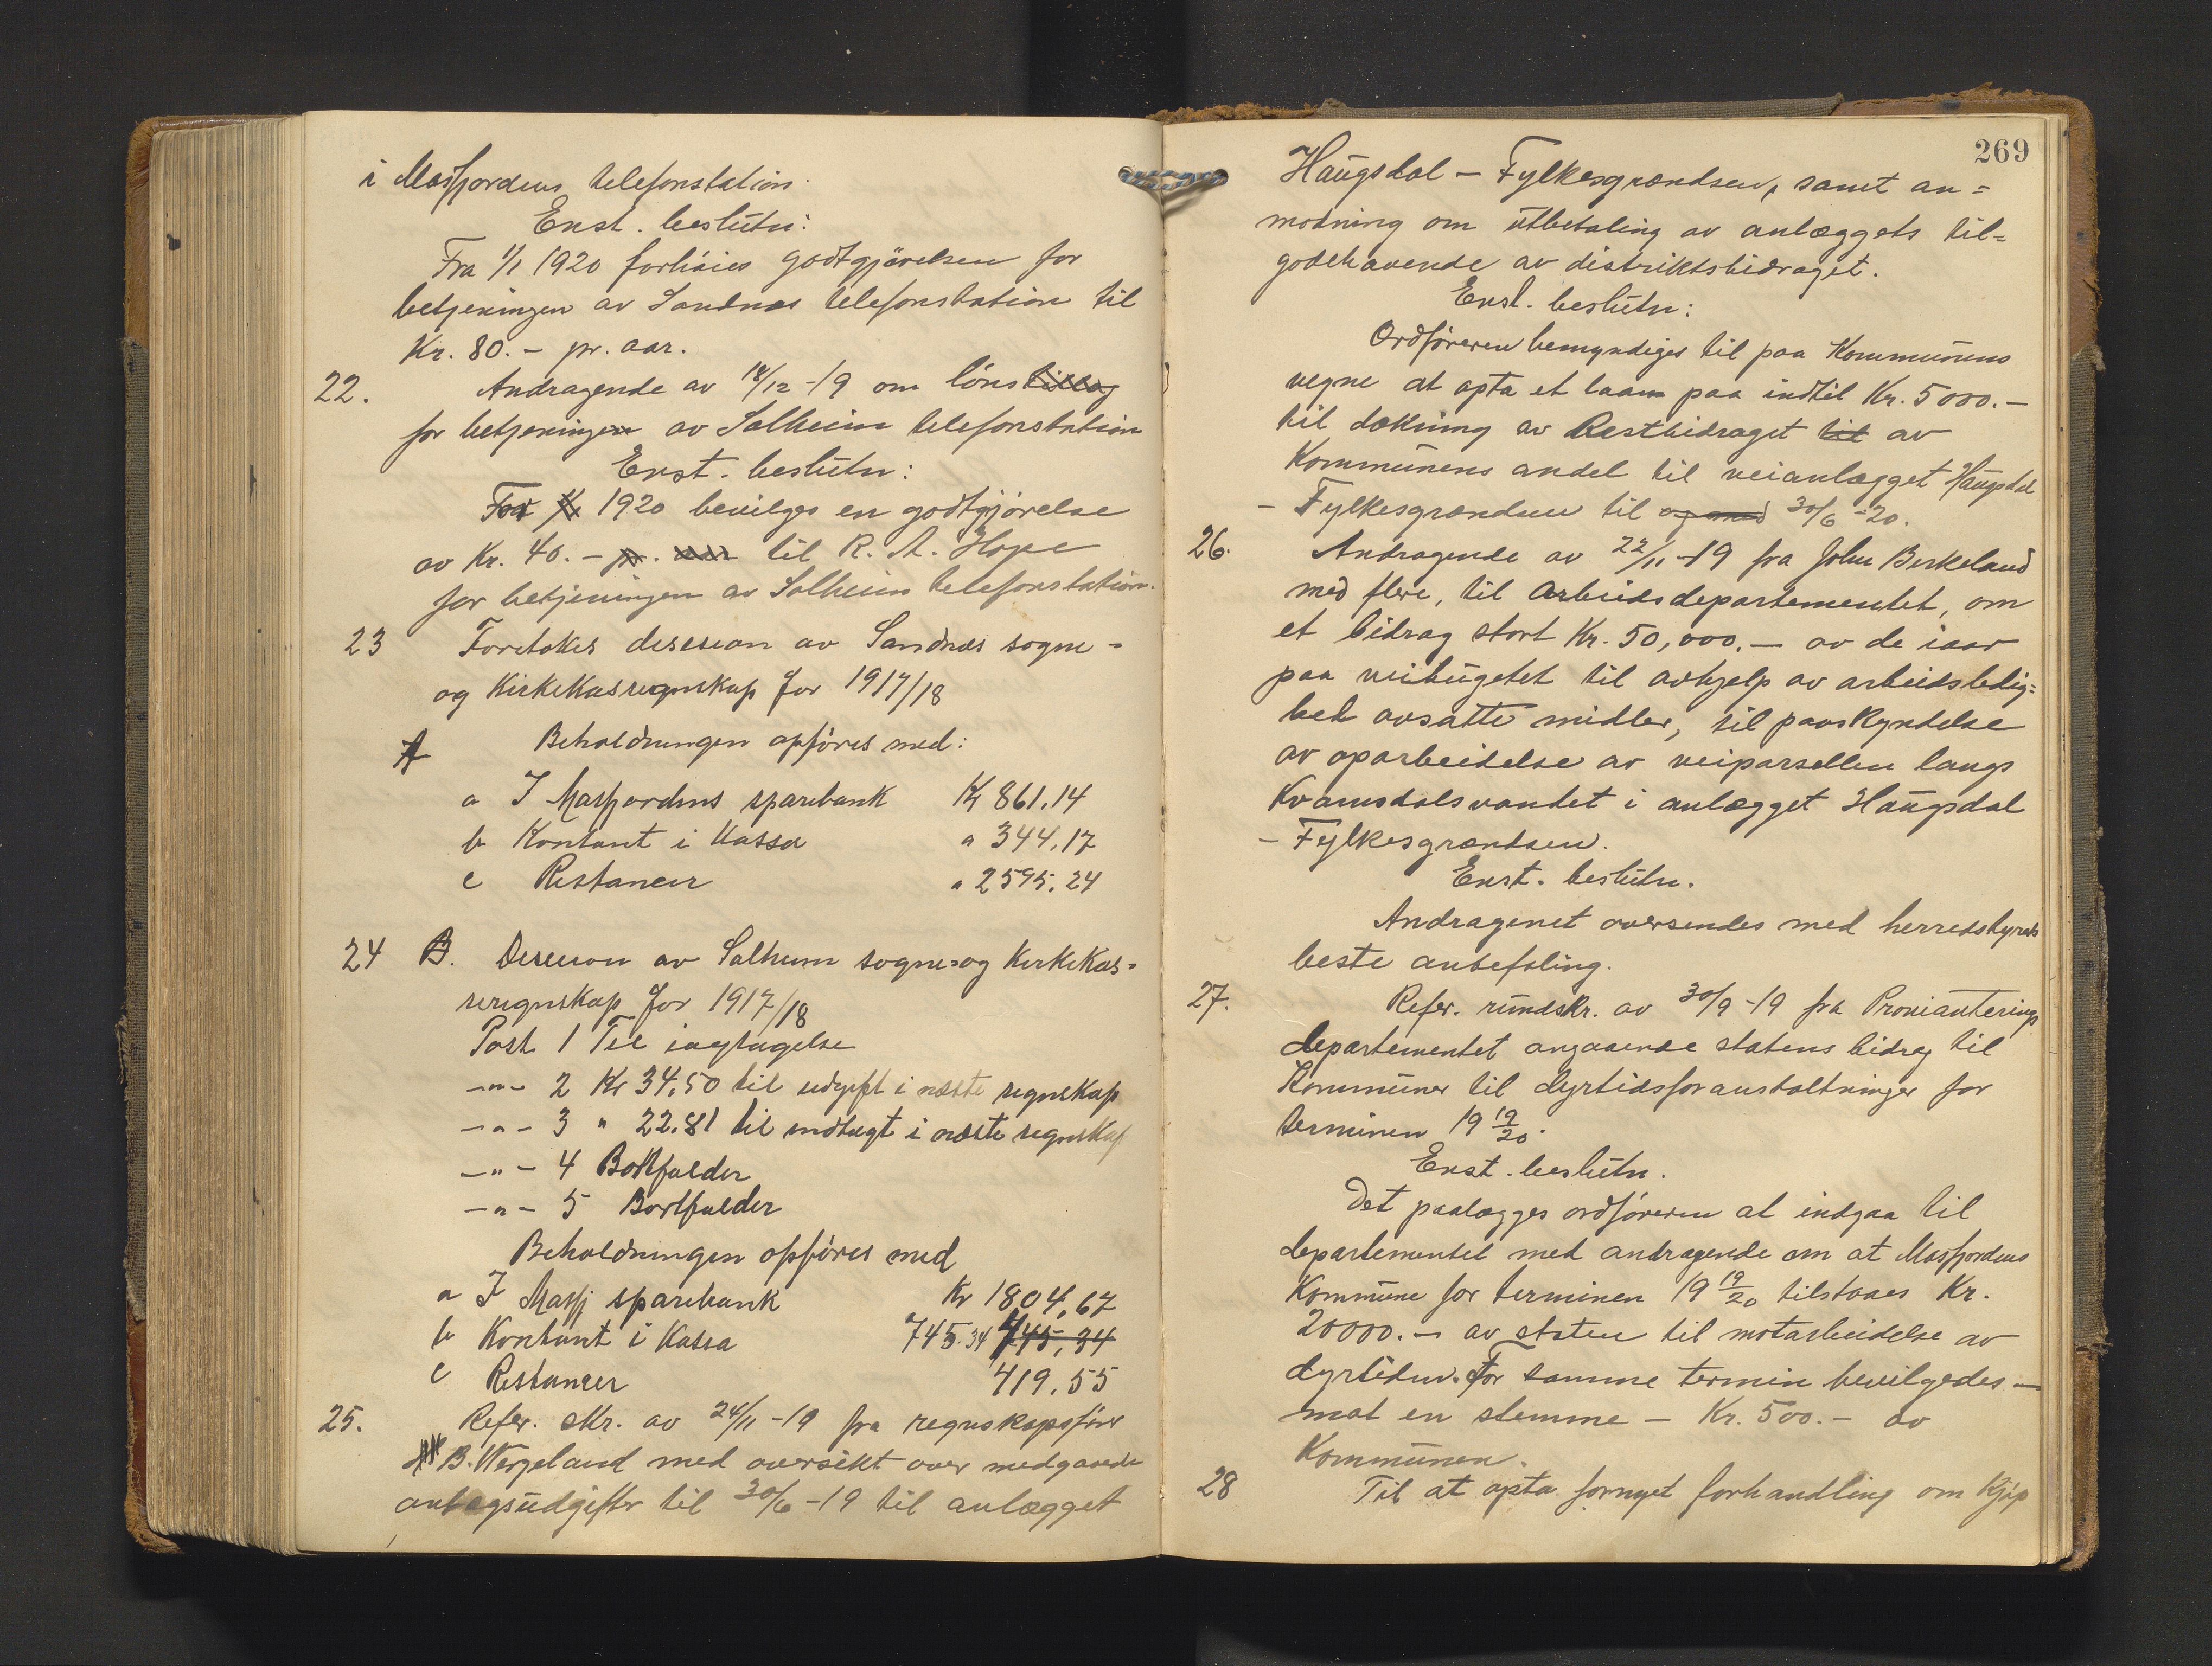 i Masfjordens telefonstation.
Enst. beslutn:
Fra 1/1 1920 forhöies godtgjörelsen for
betjeningen av Sandnes telefonstation til
Kr. 80.- pr. aar.
22. Andragende av 18/12 -19 om löns tillæg
for betjeningen av Solheim telefonstation
Enst. beslutn:
For 1920 bevilges en godtgjörelse
av Kr. 40.- pr. aar til R. A. Hope
for betjeningen av Solheim telefonstation.
23 Foretokes desesion av Sandnes sogne=
og Kirkekasregnskap for 1917/18
A Beholdningen opföres med:
a I Masfjordens sparebank Kr 861,14
b Kontant i Kassa " 344,17
c Restancer " 2595,24
24 B. Desesion av Solheim sogne=og Kirkekas=
seregnskap for 1917/18
Post 1 Til iagtagelse
-"- 2 Kr 34,50 til udgift i næste regnskap
-"- 3 " 22.81 til indtægt i næste regnskap
-"- 4 Bortfalder
-"- 5 Bortfalder
Beholdningen opföres med
a I Masfj sparebank Kr 1804,67
b Kontant i Kassa 745.34 745,34
c Restancer 419.55
25. Refer. skr. av 24/11 -19 fra regnskapsförer
B. Wergeland med oversikt over medgaaede
anlægsudgifter til 30/6 -19 til anlægget
269
Haugsdal - Fylkesgrændsen, samt an=
modning om utbetaling av anlæggets til=
godehavende av distriktsbidraget.
Enst. beslutn:
Ordföreren bemyndiges til paa Kommunens
vegne at opta et laan paa indtil Kr. 5000.-
til dækning av Restbidraget til av
Kommunens andel til veianlægget Haugsdal
- Fylkesgrændsen til og med 30/6 -20.
26. Andragende av 22/11 -19 fra John Birkeland
med flere, til Arbeidsdepartementet, om
et bidrag stort Kr. 50,000.- av de iaar
paa veibugetet til avhjelp av arbeidsledig=
het avsatte midler, til paaskyndelse
av oparbeidelse av veiparsellen langs
Kvamsdalsvandet i anlægget Haugsdal
- Fylkesgrændsen.
Enst. beslutn.
Andragenet oversendes med herredstyrets
beste anbefaling.
27. Refer. rundskr. av 30/9 -19 fra Provianterings
departementet angaaende statens bidrag til
Kommuner til dyrtidsforanstaltninger for
terminen 19 19/20.
Enst. beslutn.
Det paalægges ordföreren at indgaa til
departementet med andragende om at Masfjordens
Kommune for terminen 19 19/20 tilstaaes Kr.
20000.- av staten til motarbeidelse av
dyrtiden. For samme termin bevilgedes -
mot en stemme - Kr. 500.- av
Kommunen.
28 Til at opta fornyet forhandling om kjöp